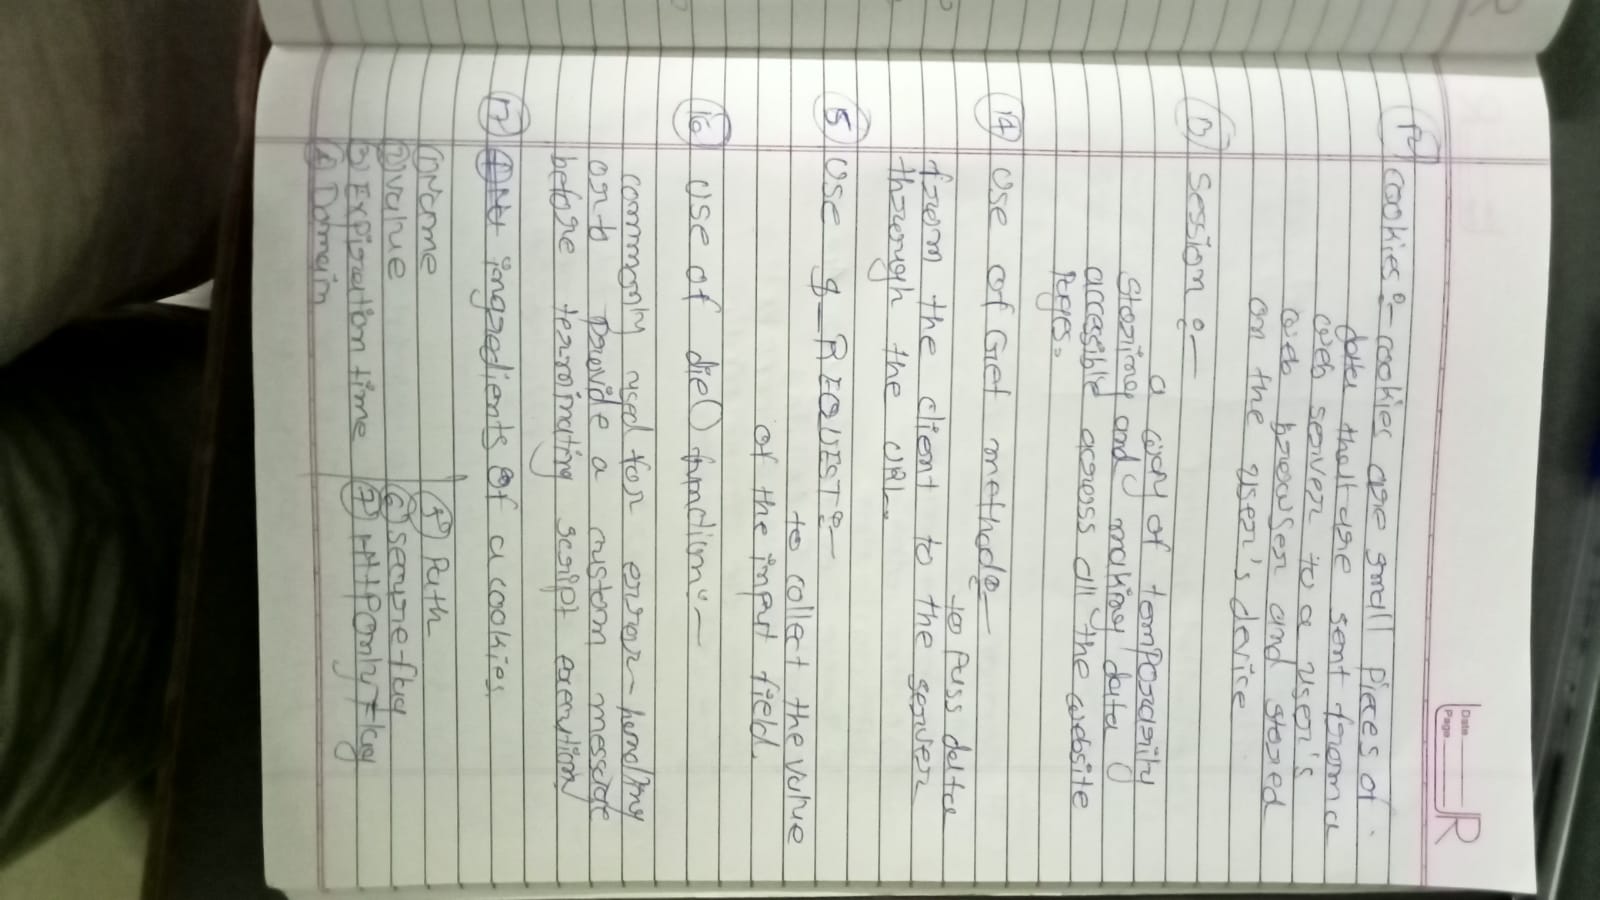 Date
Page
R
12 cookies:- cookies are small pieces of
data that are sent from a
web server to a user's
web browser and stored
on the user's device
13 Session :-
a way of temporarily
Storing and making data
accessible across all the website
Pages.
14 use of Get method:-
to pass data
from the client to the server
through the URL.
15 Use $_REQUEST:-
to collect the value
of the input field.
16 use of die() function:-
commonly used for error-handling
and provide a custom message
before terminating script execution
17 ingredients of a cookies
1) Name
2) value
3) Expiration time
4) Domain
5) Path
6) secure flag
7) HttPonly Flag